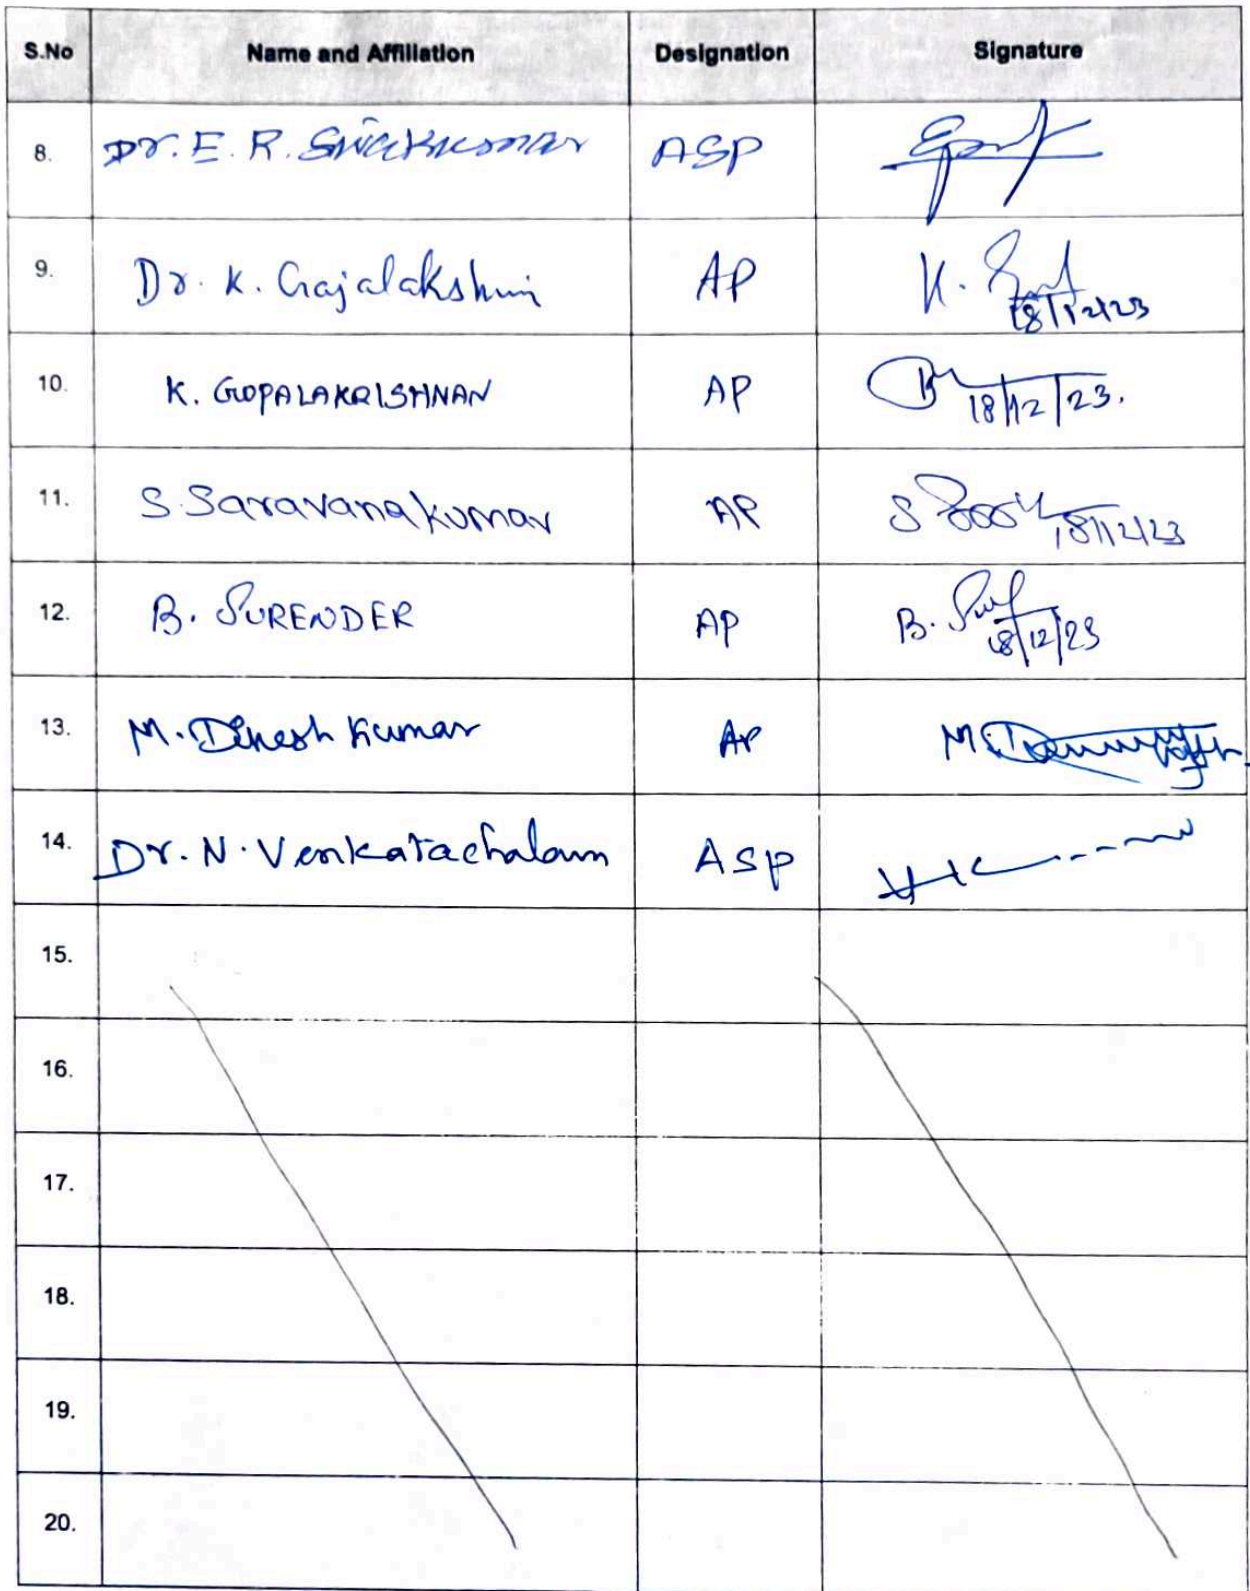 S.No Name and Affiliation Designation Signature
8. Dr. E. R. Sivakumar ASP
9. Dr. K. Gajalakshmi AP K. 18/12/23
10. K. GOPALAKRISHNAN AP 18/12/23.
11. S. Saravanakumar AP S 18/12/23
12. B. SURENDER AP B. 18/12/23
13. M. Dinesh Kumar AP M.
14. Dr. N. Venkatachalam ASP
15.
16.
17.
18.
19.
20.